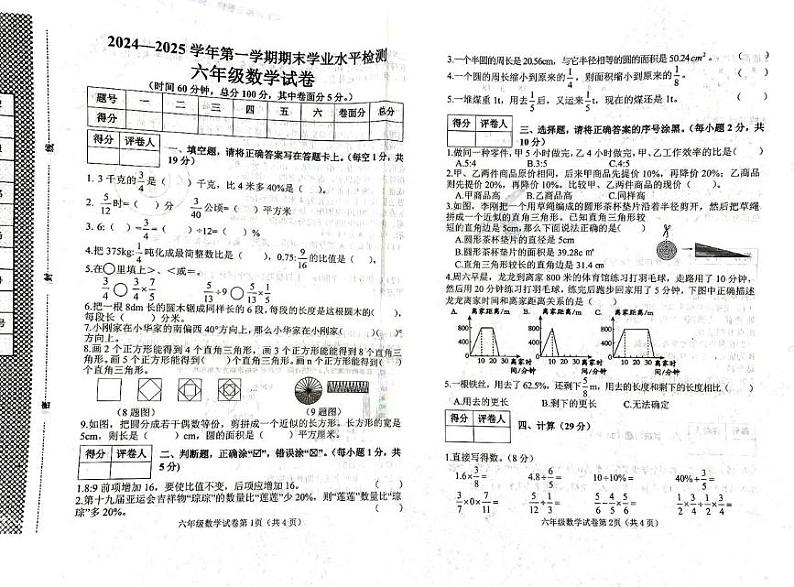 2024—2025学年第一学期期末学业水平检测
六年级数学试卷
(时间60分钟，总分100分，其中卷面分5分。)
题号 一 二 三 四 五 六 卷面分 总分
得分
得分 评卷人
一、填空题，请将正确答案写在答题卡上。(每空1分，共
19分)
1. 3千克的3/4是( )千克，比4米多40%是( )。
2. 5/12时=( )分 3/40公顷=( )平方米
3. 6:( )=3/4=( )÷12=( )%
4.把375kg:1/4吨化成最简整数比( )，0.75:9/16的比值是( )。
5.在○里填上＞、＜或=。
3/4○3/4×7/5 5/13÷9○5/13×1/5
6.把一根8dm长的圆木锯成同样长的6段,每段的长度是这根圆木的( )，
每段长( )分米。
7.小刚家在小华家的南偏西40°方向上,那么小华家在小刚家( )
方向上。
8.画2个正方形能得到4个直角三角形。画3个正方形能能得到8个直角三
角形。画5个正方形能得到( )个直角三角形。画n个正方形能得到( )
个直角三角形。
(8题图) (9题图)
9.如图，把圆分成若干偶数等份，剪拼成一个近似的长方形。长方形的宽是
5cm，则长是( )cm，圆的面积是( )平方厘米。
得分 评卷人
二、判断题，正确涂“☑”，错误涂“☒”。(每小题1分，共
5分)
1.8:9前项增加16，要使比值不变，后项应增加16。 ( )
2.第十九届亚运会吉祥物“琮琮”的数量比“莲莲”少20%，则“莲莲”数量比“琮
琮”多20%。 ( )
六年级数学试卷第1页（共4页）
3.一个半圆的周长是20.56cm，与它半径相等的圆的面积是50.24cm²。 ( )
4.一个圆的周长缩小到原来的1/4，则面积缩小到原来的1/8。 ( )
5.一堆煤重1t，用去1/5后，又运来1/5t，现在的煤还是1t。 ( )
得分 评卷人
三、选择题，请将正确答案的序号涂黑。(每小题2分，共
10分)
1.做同一种零件,甲5小时做完,乙4小时做完,甲、乙工作效率的比是( )
A.5:4 B.3:5 C.4:5
2.甲、乙两件商品原价相同，后来甲商品先提价10%，再降价20%；乙商品
则先提价20%，再降价10%，比较甲、乙两件商品的现价( )。
A.甲商品高 B.乙商品高 C.同样高
3.如图，李刚把一个用草绳编成的圆形茶杯垫片沿着半径剪开，然后把草绳
拼成一个近似的直角三角形。已知直角三角形较
短的直角边是5cm,那么下面说法正确的是( )
A.圆形茶杯垫片的直径是5cm
B.圆形茶杯垫片的面积是39.28c㎡
C.直角三角形较长的直角边是31.4cm
4.周六早晨，龙龙到离家800米的体育馆练习打羽毛球，走路用了10分钟，
然后用20分钟练习打羽毛球，练完后跑步回家用了5分钟，下图中正确描述
龙龙离家时间和离家距离关系的是( )
A. 离家距离/m B. 离家距离/m C. 离家距离/m
800 800 800
400 400 400
10 20 30 离家时 10 20 30 离家时 10 20 30 离家时
间/分钟 间/分钟 间/分钟
5.一根铁丝，用去了62.5%，还剩下5/8m，用去的长度和剩下的长度相比( )
A.用去的更长 B.剩下的更长 C.无法确定
得分 评卷人
四、计算(29分)
1.直接写得数。(8分)
1.6×3/8= 4.8÷6/10= 10÷10%= 40%÷3/5=
3/7×0×7/11= 5/12÷5/3= 5/6×4/5×6/5= 1/2×1/2÷1/2×1/2=
六年级数学试卷第2页（共4页）
线
封
密